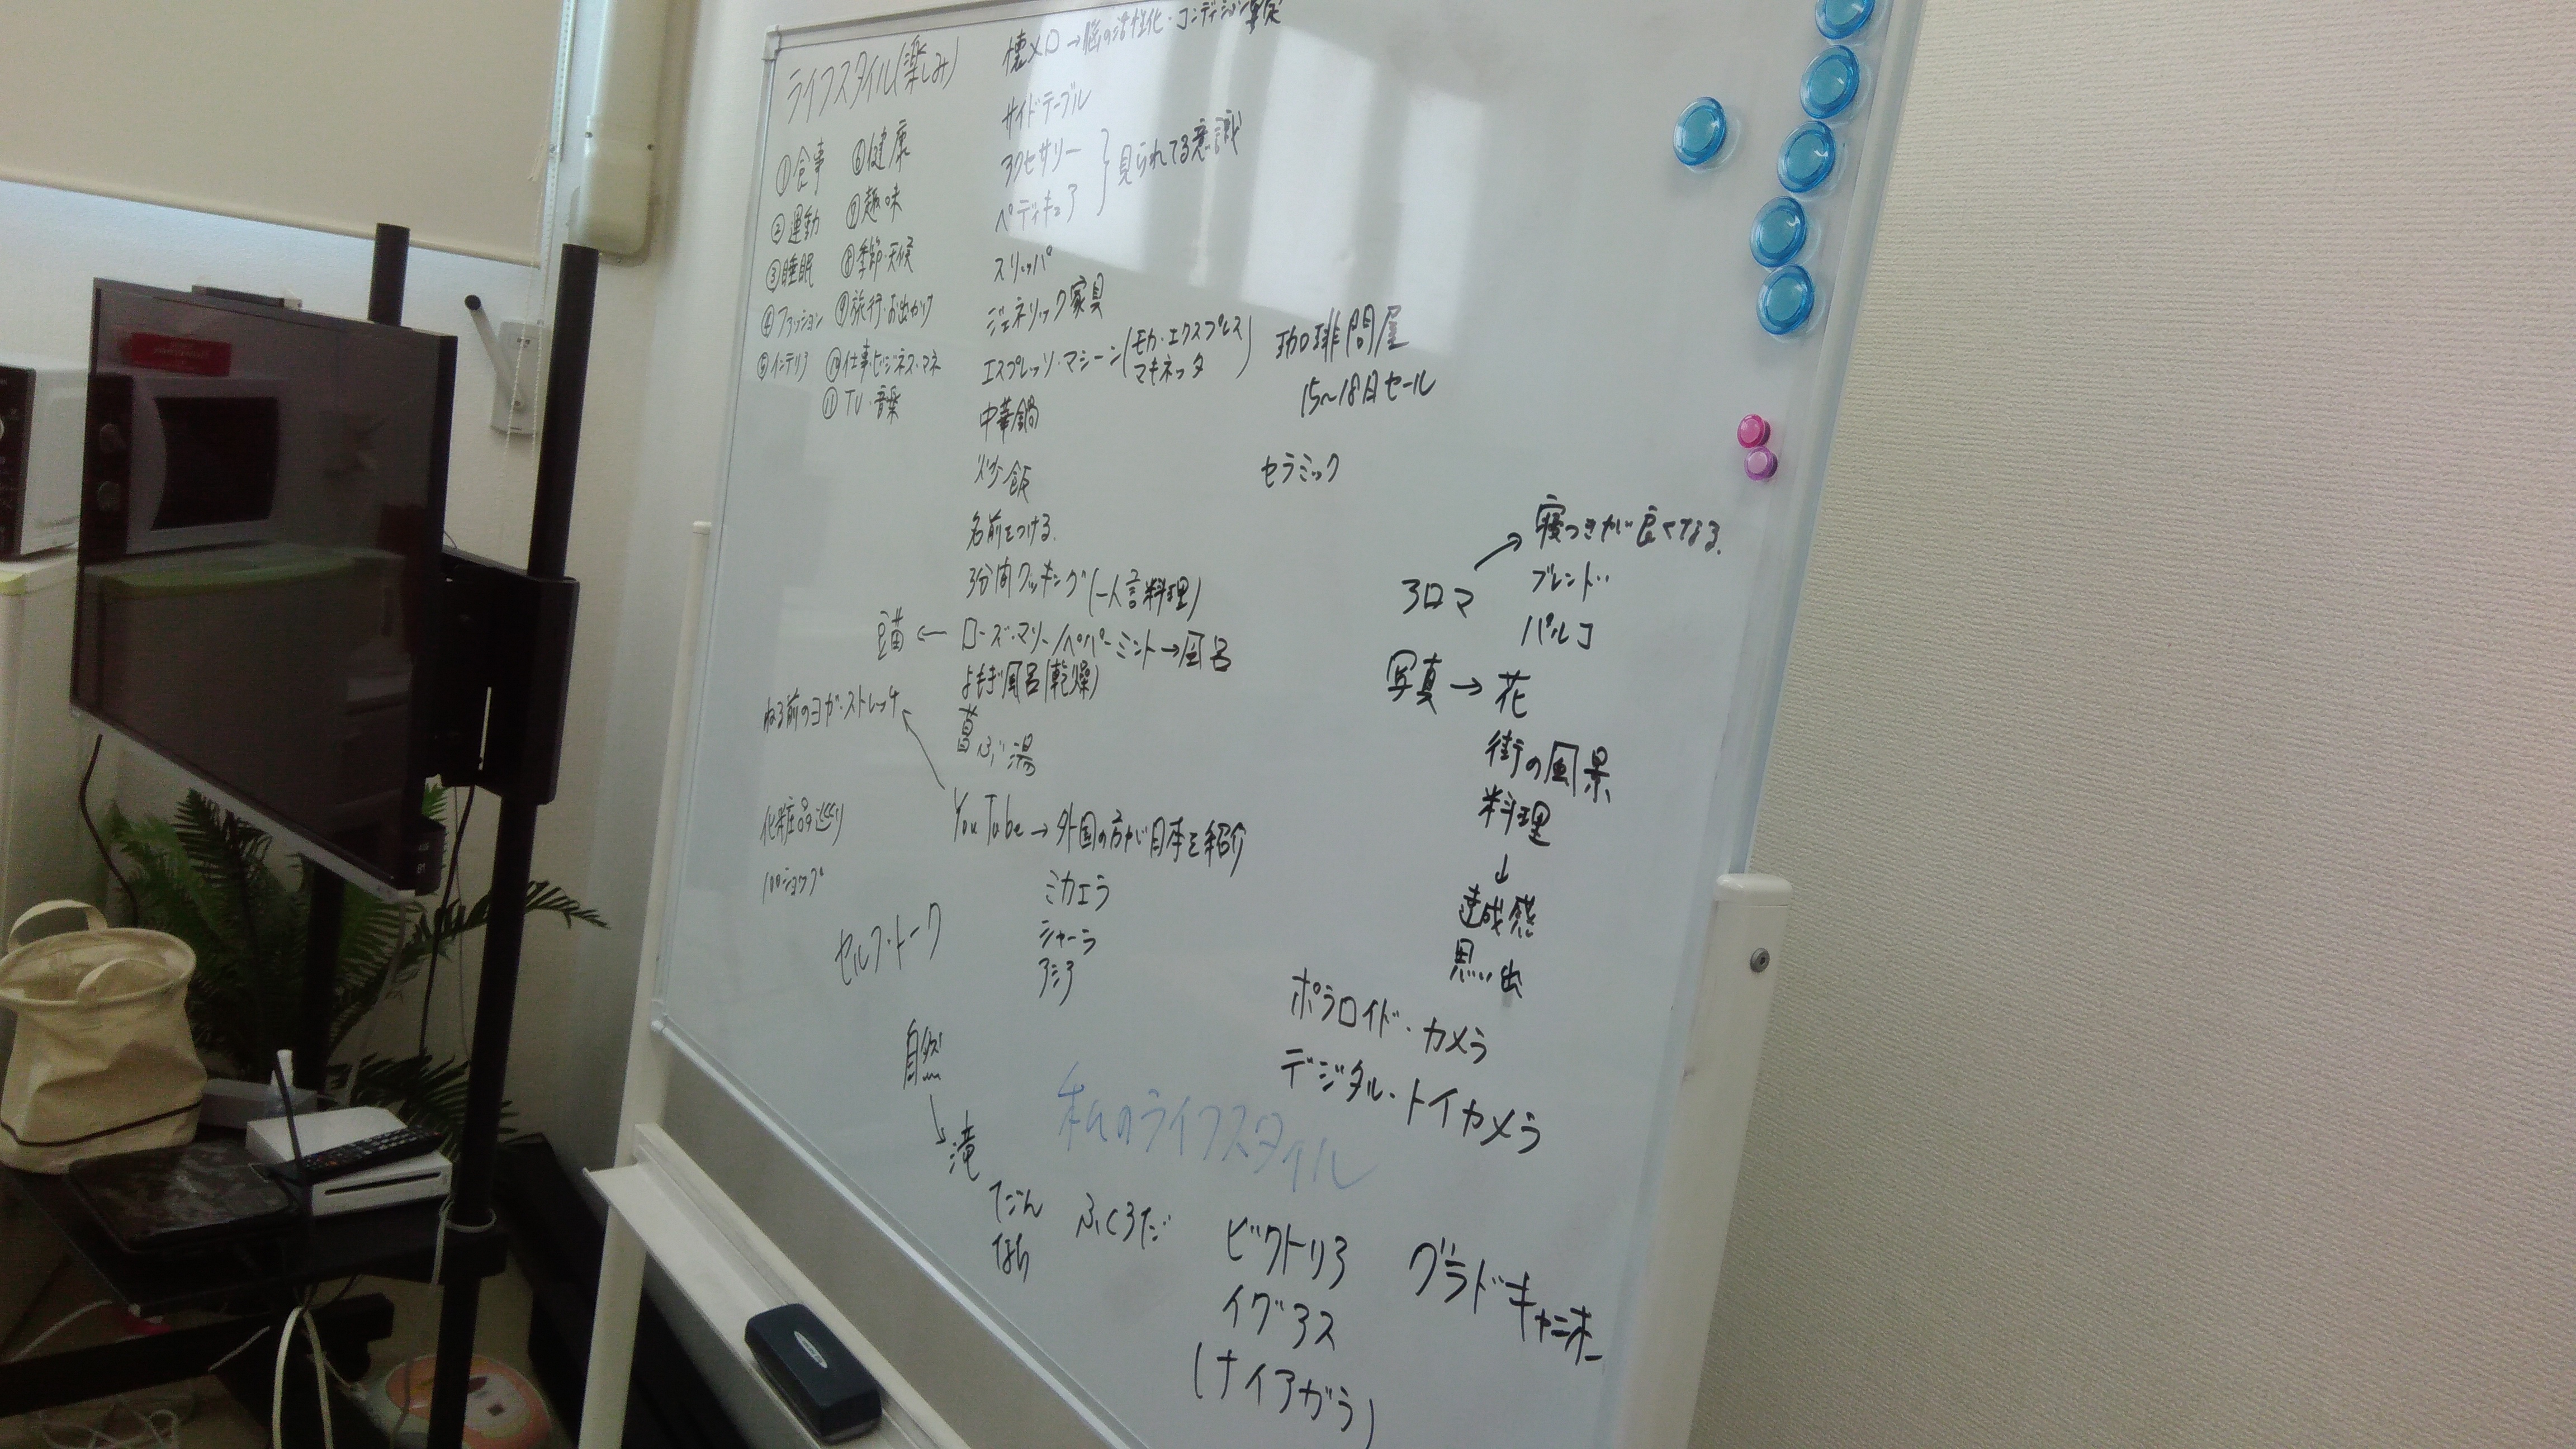 ライフスタイル(楽しみ)
①食事 ⑥健康
②運動 ⑦趣味
③睡眠 ⑧季節・天候
④ファッション ⑨旅行・お出かけ
⑤インテリア ⑩仕事・ビジネス・マネ
⑪TV・音楽
懐メロ→脳の活性化・コンディション
サイドテーブル
アクセサリー
ペディキュア
}見られてる意識
スリッパ
ジェネリック家具
エスプレッソ・マシーン(モカ・エクスプレス
マキネッタ)
珈琲問屋
15~18日セール
中華鍋
セラミック
炒飯
名前をつける.
3分間クッキング(一人言料理)
豆苗←ローズ・マリー/ペパーミント→風呂
よもぎ風呂(乾燥)
菖ぶ湯
ねる前のヨガ・ストレッチ
YouTube→外国の方が日本を紹介
ミカエラ
シャーラ
アシア
化粧品巡り
100ショップ
セルフ・トーク
アロマ
寝つきが良くなる.
ブレンド
パルコ
写真→花
街の風景
料理
↓
達成感
思い出
ポラロイド・カメラ
デジタル・トイカメラ
自然
滝
私のライフスタイル
ふくろだ
ビクトリア
イグアス
(ナイアガラ)
グラドキャニオ